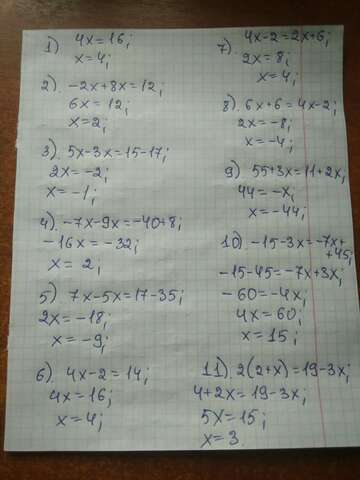 1) 4x=16;
x=4;
2). -2x+8x=12;
6x=12;
x=2;
3). 5x-3x=15-17;
2x=-2;
x=-1;
4) -7x-9x=-40+8;
-16x=-32;
x=2;
5) 7x-5x=17-35;
2x=-18;
x=-9;
6) 4x-2=14;
4x=16;
x=4;
7). 4x-2=2x+6;
2x=8;
x=4;
8). 6x+6=4x-2;
2x=-8;
x=-4;
9) 55+3x=11+2x;
44=-x;
x=-44;
10). -15-3x=-7x+
+45;
-15-45=-7x+3x;
-60=-4x;
4x=60;
x=15;
11). 2(2+x)=19-3x;
4+2x=19-3x;
5x=15;
x=3.